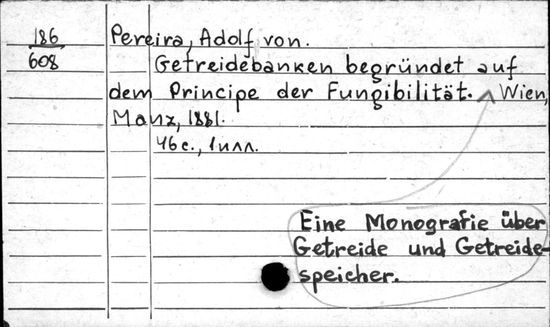 186
608
Pereira, Adolf von.
Getreidebanken begründet auf
dem Principe der Fungibilität. Wien,
Manz, 1881.
46 с., 1 илл.
Eine Monografie über
Getreide und Getreide-
speicher.